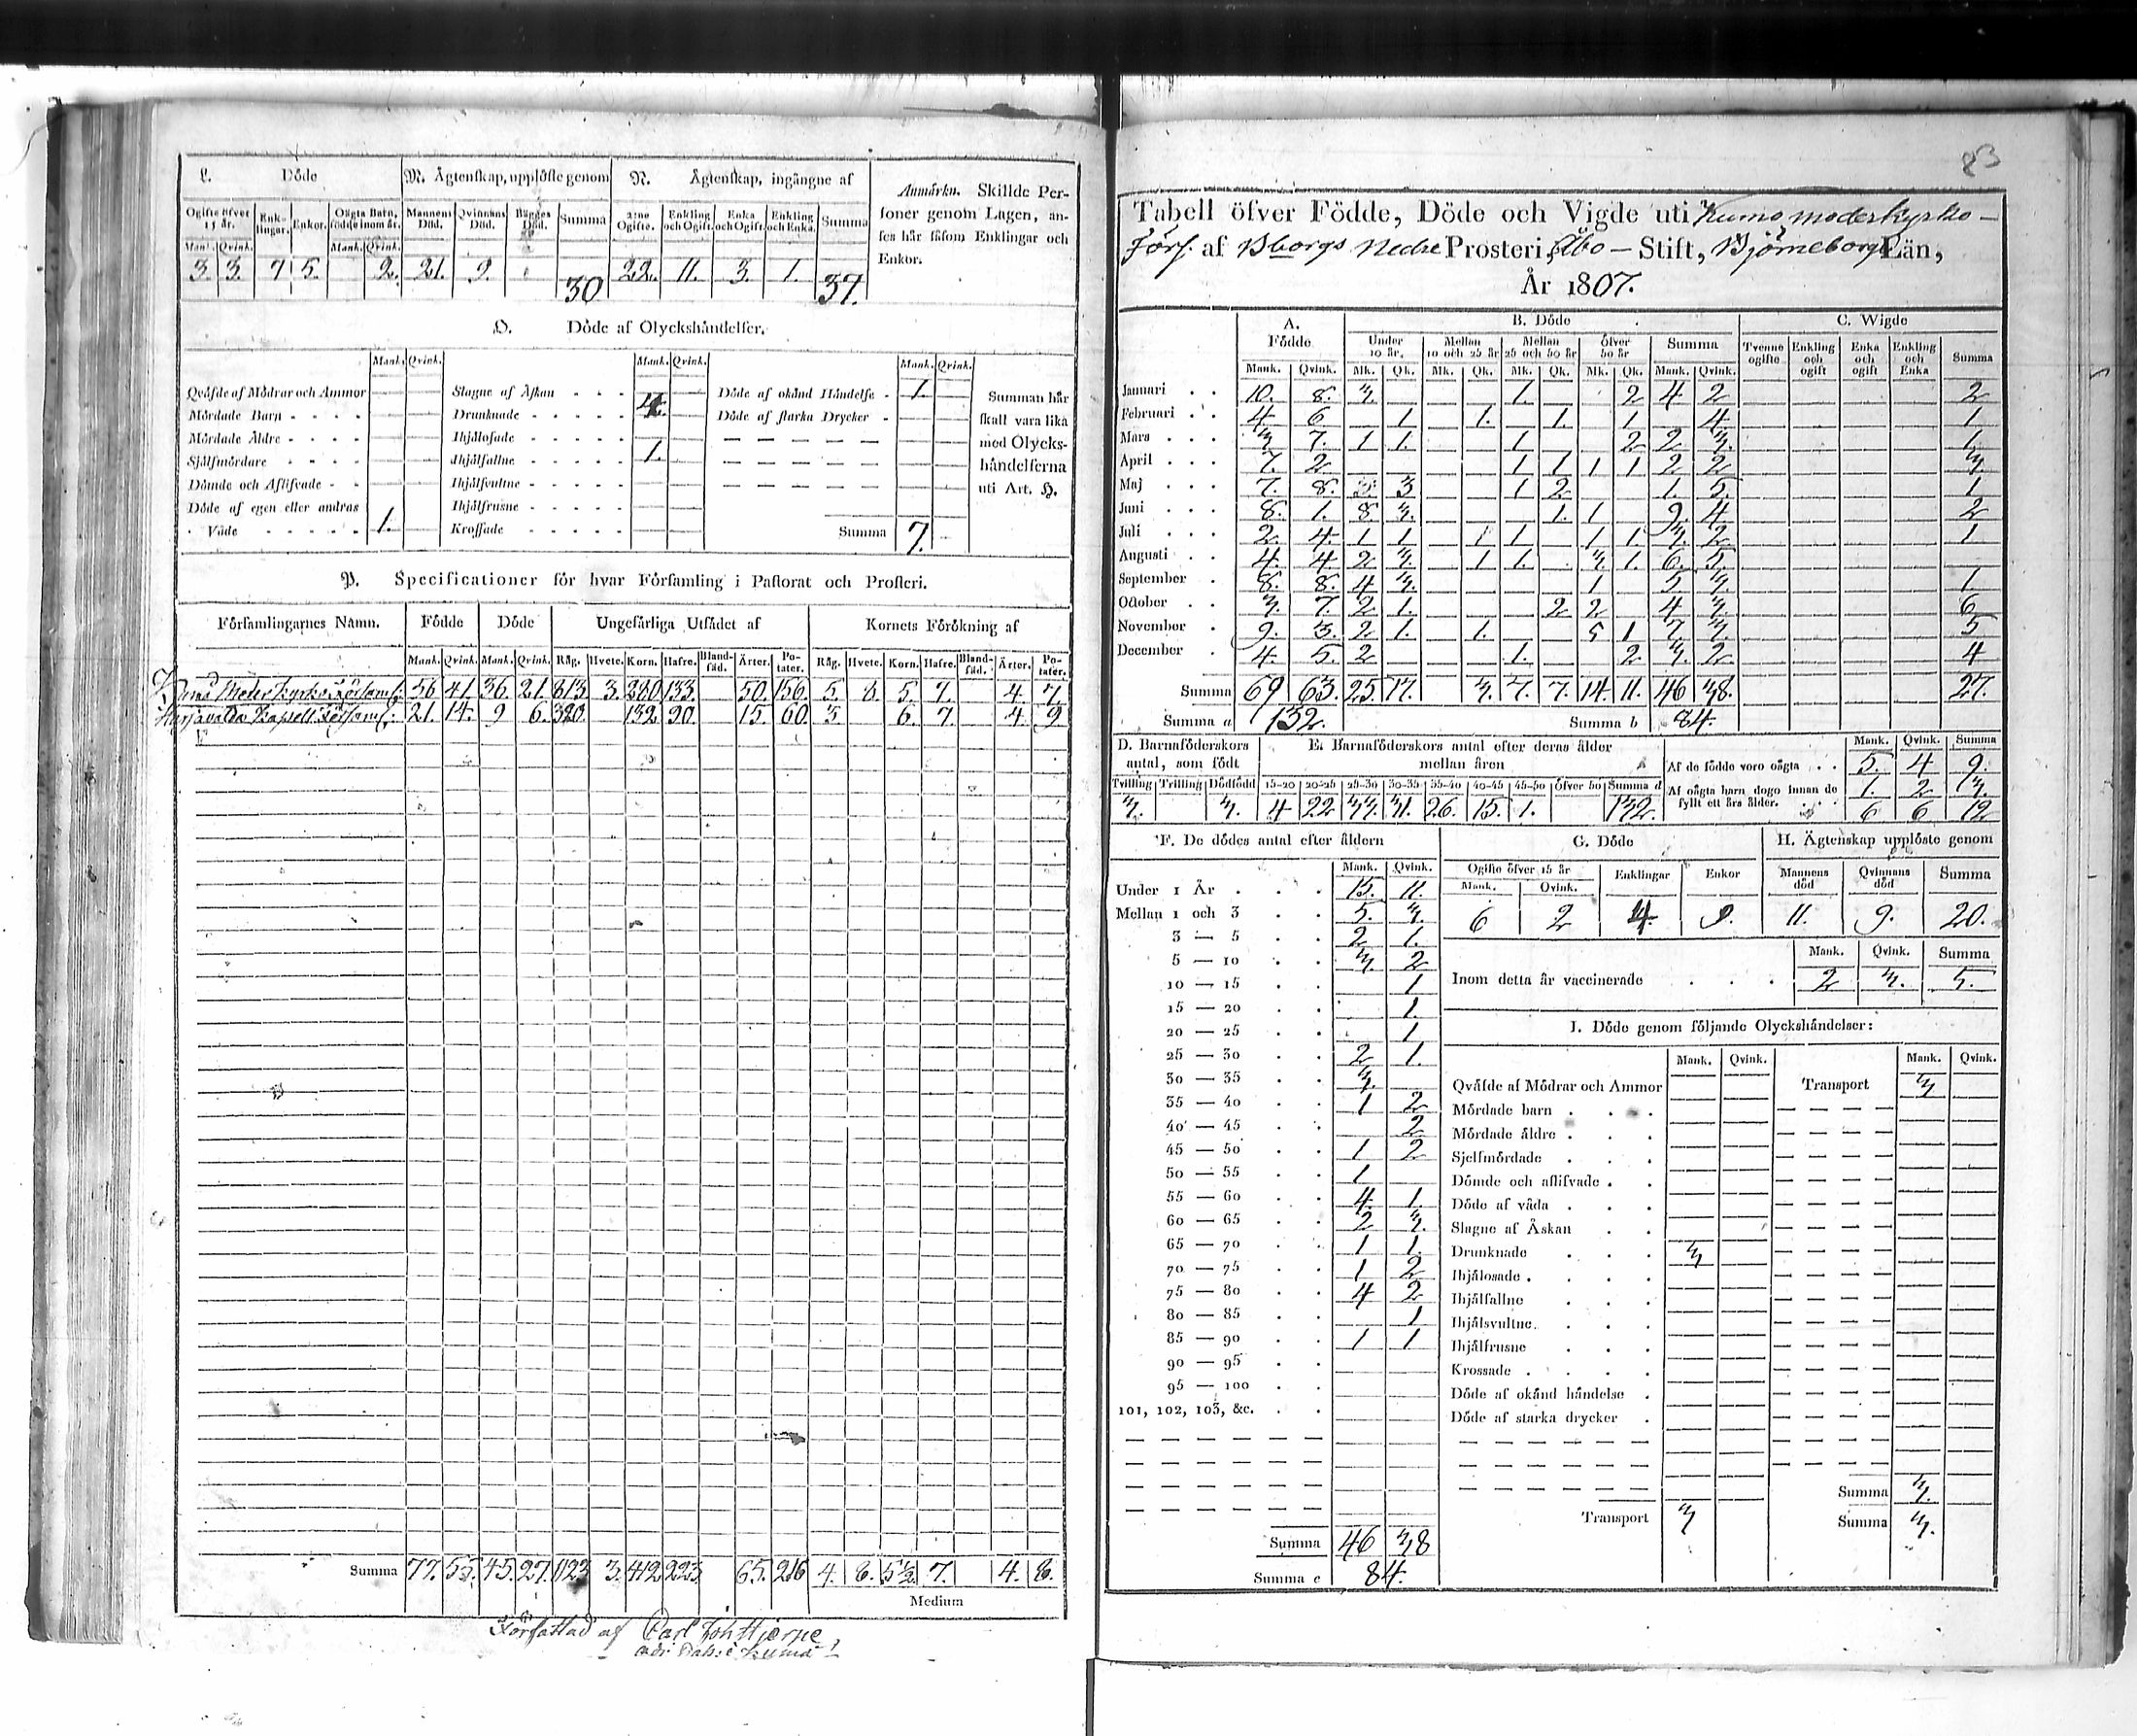 L. Döde M. Ägtenskap, upplöste genom N. Ägtenskap, ingångne af Anmärkn. Skillde Per-
soner genom Lagen, an-
ses här såsom Enklingar och
Enkor.
Ogifte öfver 15 år. Enk-lingar. Enkor. Oägta Barn, födde inom år. Mannens Död. Qvinnans Död. Bägges Död. Summa 2:ne Ogifte. Enkling och Ogift. Enka och Ogift. Enkling och Enka. Summa
Mank. Qvink. Mank. Qvink.
3. 3. 7 5. 2. 21. 9. 30 22. 11. 3. 1. 37.
O. Döde af Olyckshändelser.
Mank. Qvink. Mank. Qvink. Mank. Qvink.
Qväfde af Mödrar och Ammor Slagne af Åskan Döde af okänd Händelse 1. Summan här
Mördade Barn Drunknade 4. Döde af starka Drycker skall vara lika
Mördade Äldre Ihjälosade med Olycks-
Sjålfmördare Ihjälfallne 1. händelserna
Dömde och Aflifvade Ihjälsvultne uti Art. H.
Döde af egen eller andras Ihjälfrusne
Våde 1. Krossade Summa 7.
P. Specificationer för hvar Församling i Pastorat och Prosteri.
Församlingarnes Namn. Födde Döde Ungefärliga Utsädet af Kornets Förökning af
Mank. Qvink. Mank. Qvink. Råg. Hvete. Korn. Hafre. Bland-säd. Ärter. Po-tater. Råg. Hvete. Korn. Hafre. Bland-säd. Ärter. Po-tater.
Kumo Moder Kyrko Församl: 56 41. 36. 21. 813 3. 280 133 50. 156. 5. 8. 5. 7. 4. 7.
Harjavalda Kapell Församl: 21. 14. 9 6. 320. 132 90. 15 60. 3 6. 7. 4. 9
Summa 77. 55. 45. 27. 1123 3. 412 223. 65. 216 4. 8. 5½ 7. 4. 8.
Medium
Författad af Carl Joh Hjerpe
83
Tabell öfver Födde, Döde och Vigde uti Kumo moderkyrko-
Förs. af Bborgs Nedre Prosteri, Åbo - Stift, Björneborgs Län,
År 1807.
A. Födde B. Döde C. Wigde
Under 10 år. Mellan 10 och 25 år Mellan 25 och 50 år Öfver 50 år Summa Tvenne ogifte Enkling och ogift Enka och ogift Enkling och Enka Summa
Mank. Qvink. Mk. Qk. Mk. Qk. Mk. Qk. Mk. Qk. Mank. Qvink.
Januari 10. 8. 3. 1. 2 4 2 2
Februari 4 6 1 1. 1. 1 4. 1
Mars 3 7. 1 1. 1 2 2 3. 1.
April 7. 2 1 1 1 1 2 2 3.
Maj 7. 8. 3 1 2 1. 5. 1
Juni 8. 1. 8 3. 1. 1 9. 4 2
Juli 2 4 1 1 1 1 1 1 3. 2 1
Augusti 4. 4 2 3. 1 1. 3. 1. 6. 5.
September 8. 8. 4 3. 1 5 3. 1
October 3. 7. 2 1. 2 2 4 3. 6
November 9. 3. 2 1. 1. 5 1 7. 3. 5
December 4. 5. 2 1. 2. 3. 2 4
Summa 69 63. 25. 17. 3. 7. 7. 14. 11. 46 38. 27.
Summa a 132. Summa b 84.
D. Barnaföderskors antal, som födt E. Barnaföderskors antal efter deras ålder mellan åren Mank. Qvink. Summa
Af de födde voro oägta 5. 4 9.
Tvilling Trilling Dödfödd 15-20 20-25 25-30 30-35 35-40 40-45 45-50 öfver 50 Summa d Af oägta barn dogo innan de fyllt ett års ålder. 1. 2 3.
3. 3. 4 22 33. 31. 26. 15. 1. 132. 6 6 12
F. De dödes antal efter åldern G. Döde H. Ägtenskap upplöste genom
Mank. Qvink. Ogifte öfver 15 år Enklingar Enkor Mannens död Qvinnans död Summa
Mank. Qvink.
6 2 4. 9. 11. 9. 20.
Under 1 År 15. 11.
Mellan 1 och 3 5. 3.
3 — 5 2 1.
5 — 10 3. 2
10 — 15 1
15 — 20 1.
20 — 25 1
25 — 30 2 1.
30 — 35 3.
35 — 40 1 2
40 — 45 2
45 — 50 1 2
50 — 55 1
55 — 60 4. 1.
60 — 65 2 3.
65 — 70 1 1.
70 — 75 1 2
75 — 80 4 2
80 — 85 1
85 — 90 1 1
90 — 95
95 — 100
101, 102, 103, &c.
Summa 46 38
Summa e 84.
Mank. Qvink. Summa
Inom detta år vaccinerade 2 3. 5.
I. Döde genom följande Olyckshändelser:
Mank. Qvink. Mank. Qvink.
Qväfde af Mödrar och Ammor Transport 3
Mördade barn
Mördade äldre
Sjelfmördade
Dömde och aflifvade
Döde af våda
Slagne af Åskan
Drunknade 3
Ihjälosade
Ihjälfallne
Ihjälsvultne
Ihjälfrusne
Krossade
Döde af okänd händelse
Döde af starka drycker
Summa 3.
Transport 3 Summa 3.